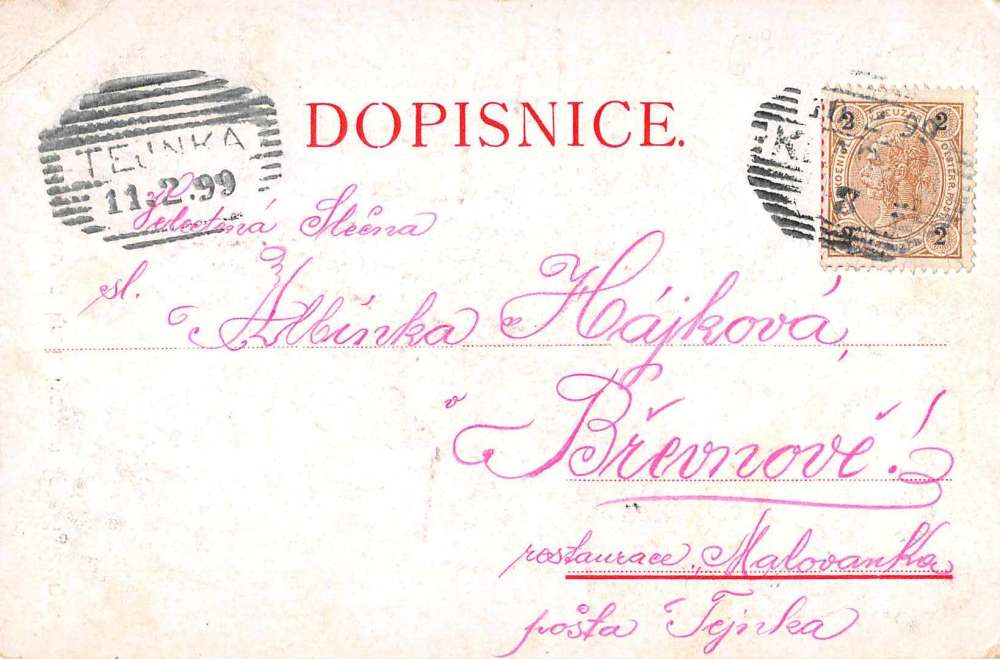 DOPISNICE.
TEJNKA
11.2.99
2 KREUZER 2
2 2
Velectná Slečna
sl. Albínka Hájková,
v Břevnově!
restaurace „Malovanka
pošta Tejnka